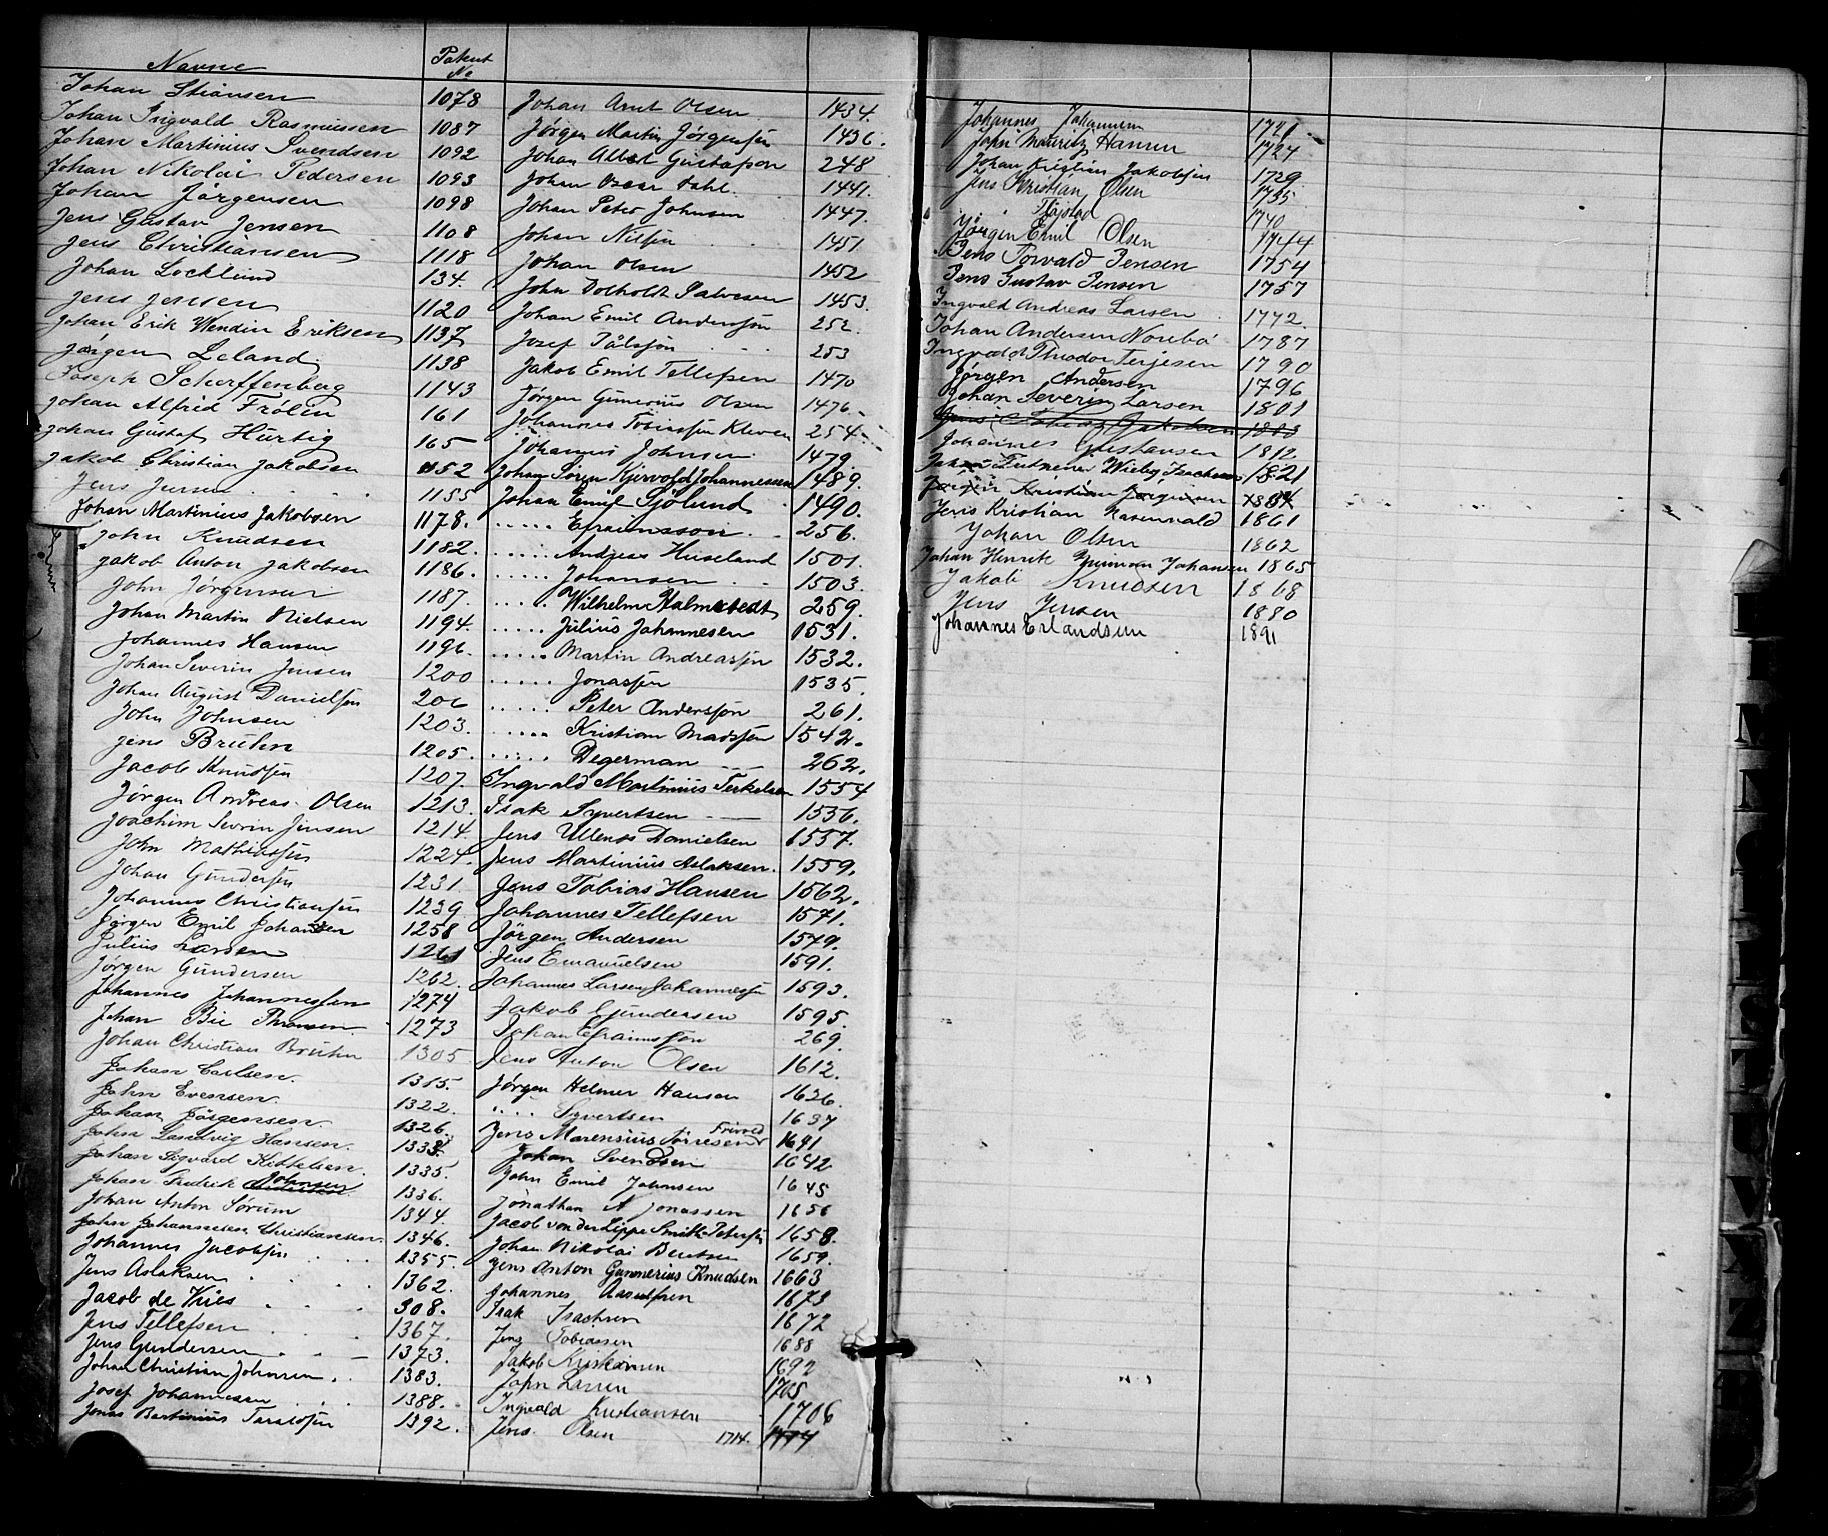 Navne Patent No
Johan Stiansen 1078
Johan Ingvald Rasmussen 1087
Johan Martinius Svendsen 1092
Johan Nikolai Pedersen 1093
Johan Jørgensen 1098
Jens Gustav Jensen 1108
Jens Christiansen 1118
Johan Locklund 134.
Jens Jensen 1120
Johan Erik Wendin Eriksen 1137
Jørgen Leland 1138
Joseph Scherffenberg 1143
Johan Alfred Frölin 161
Johan Gustaf Hurtig 165
Jakob Christian Jakobsen 1152
Jens Jensen 1155
Johan Martinius Jakobsen 1178.
John Knudsen 1182.
Jakob Anton Jakobsen 1186.
John Jørgensen 1187.
Johan Martin Nielsen 1194.
Johannes Hansen 1196.
Johan Severin Jensen 1200
Johan August Danielsen 206
John Johnsen 1203.
Jens Bruhn 1205.
Jacob Knudsen 1207.
Jørgen Andreas Olsen 1213.
Joachim Sevrin Jensen 1214.
John Mathiassen 1224.
Johan Gundersen 1231.
Johannes Christiansen 1239.
Jørgen Emil Johansen 1258
Julius Larsen 1261
Jørgen Gundersen 1262.
Johannes Johannessen 1274
Johan Bie Thomsen 1273
Johan Christian Bruhn 1305
Johan Carlsen. 1315.
John Evensen. 1322.
Johan Jørgensen. 1326.
John Ludvig Hansen. 1333.
Johan Sigvard Kittelsen. 1335.
Johan Fredrik Johnsen 1336.
Johan Anton Sørum 1344.
John Johannesen Christiansen. 1346.
Johannes Jacobsen 1355.
Jens Aslaksen 1362.
Jacob de Vries 308.
Jens Tellefsen 1367.
Jens Gundersen 1373.
Johan Christian Johnsen 1383.
Josef Johannessen 1388.
Jonas Bertinius Taraldsen 1392.
Johan Arnt Olsen 1434.
Jørgen Martin Jørgensen 1436.
Johan Albert Gustafson 248
Johan Oscar Dahl. 1441.
Johan Peter Johnsen 1447.
Johan Nilsen 1451.
Johan Olsen 1452
John Dotholdt Salvesen 1453.
Johan Emil Andersson 252.
Josef Pålsson 253
Jakob Emil Tellefsen 1470
Jørgen Gunerius Olsen 1476.
Johannes Tobiassen Kleven 254.
Johannes Johnsen 1479
Johan Søren Kjervold Johannessen 1489.
Johan Emil Sjölund 1490.
..... Efraimsson 256.
..... Andreas Huseland 1501.
..... Johansen 1503.
..... Wilhelm Halmstedt 259.
..... Julius Johannesen 1531.
..... Martin Andreassen 1532.
..... Jonassen 1535.
..... Peter Andersson 261.
..... Kristian Madssen 1542.
..... Degerman 262.
Ingvald Martinius Terkelsen 1554
Isak Syvertsen 1556.
Jens Ullenes Danielsen 1557.
Jens Martinius Aslaksen. 1559.
Jens Tobias Hansen 1562.
Johannes Tellefsen 1571.
Jörgen Andersen 1579.
Jens Emanuelsen 1591.
Johannes Larsen Johannesen 1593.
Jakob Gundersen 1595.
Johan Efraimsson 269.
Jens Anton Olsen 1612.
Jørgen Helmer Hansen 1626.
.... Syvertsen 1637
Jens Marensius Torresen Frivold 1641
Johan Svendsen 1642
John Emil Johnsen 1645
Jonathan A Jonassen 1656
Jacob von der Lippe Smith Petersen 1658.
Johan Nikolai Berntsen 1659.
Jens Anton Gunnerius Knudsen 1663
Johannes Aasulfsen 1673
Isak Isachsen 1672
Jens Tobiassen 1688
Jakob Kristiansen 1692
John Larsen 1705
Ingvald Kristiansen 1706
Jens Olsen 1714.
Johannes Johannesen 1721
John Mauritz Hansen 1724
Johan Kristian Jakobsen 1729
Jens Kristian Olsen 1735
Fløistad 1740
Jørgen Emil Olsen 1744
Jens Torvald Jensen 1754
Jens Gustav Jensen 1757
Ingvald Andreas Larsen 1772.
Johan Andersen Norebø 1787
Ingvald Theodor Terjesen 1790
Jørgen Andersen 1796
Johan Severin Larsen 1801
Jens Tobias Jakobsen 1803
Johannes Gustavsen 1812
Wieby Isachsen 1821
Jørgen Kristian Jørgensen 1834
Jens Kristian Rosenvald 1861
Johan Olsen 1862
Johan Henrik Johansen 1865
Jakob Knudsen 1868
Jens Jensen 1880
Johannes Erlandsen 1891